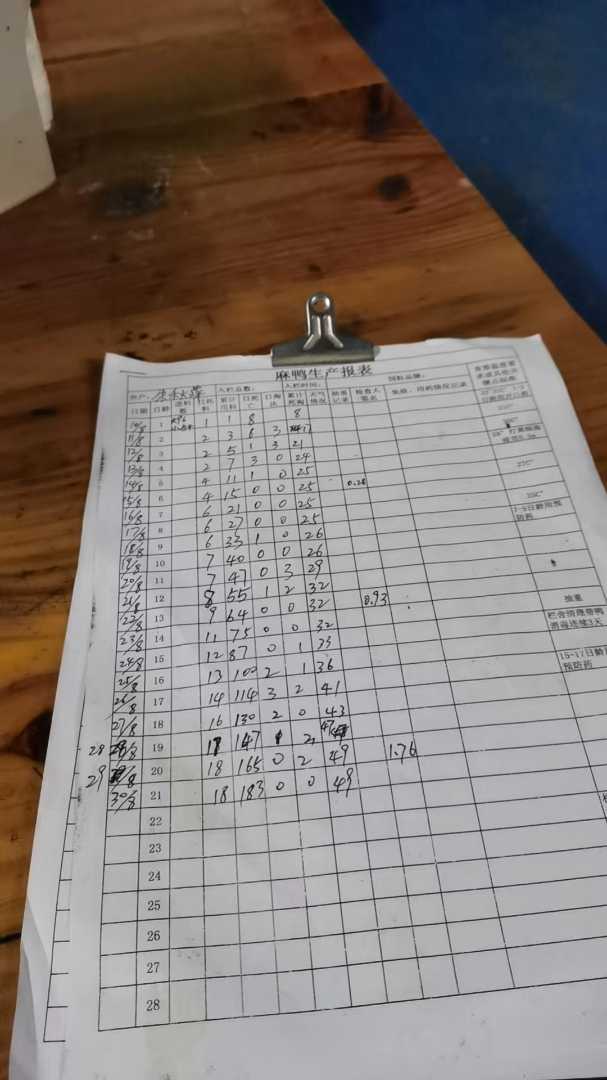 麻鸭生产报表
农户： 入栏总数： 入栏时间： 饲料品牌：
日期 日龄 进料数 日耗料 累计用料 日死亡 日淘汰 累计死淘 天气情况 抽查记录 检查人签名 免疫、用药情况记录
10/8 1 1 1 8 8
11/8 2 2 3 6 3 17
12/8 3 2 5 1 3 21
13/8 4 2 7 3 0 24
14/8 5 4 11 1 0 25
15/8 6 4 15 0 0 25 0.28
16/8 7 6 21 0 0 25
17/8 8 6 27 0 0 25
18/8 9 6 33 1 0 26
19/8 10 7 40 0 0 26
20/8 11 7 47 0 3 29
21/8 12 8 55 1 2 32
22/8 13 9 64 0 0 32 0.93
23/8 14 11 75 0 0 32
24/8 15 12 87 0 1 33
25/8 16 13 100 2 1 36
26/8 17 14 114 3 2 41
27/8 18 16 130 2 0 43
28/8 19 17 147 1 2 47
29/8 20 18 165 0 2 49 1.76
30/8 21 18 183 0 0 49
22
23
24
25
26
27
28
7-9日龄用预防药
抽重
栏舍清理带鸭消毒连续3天
15-17日龄
预防药